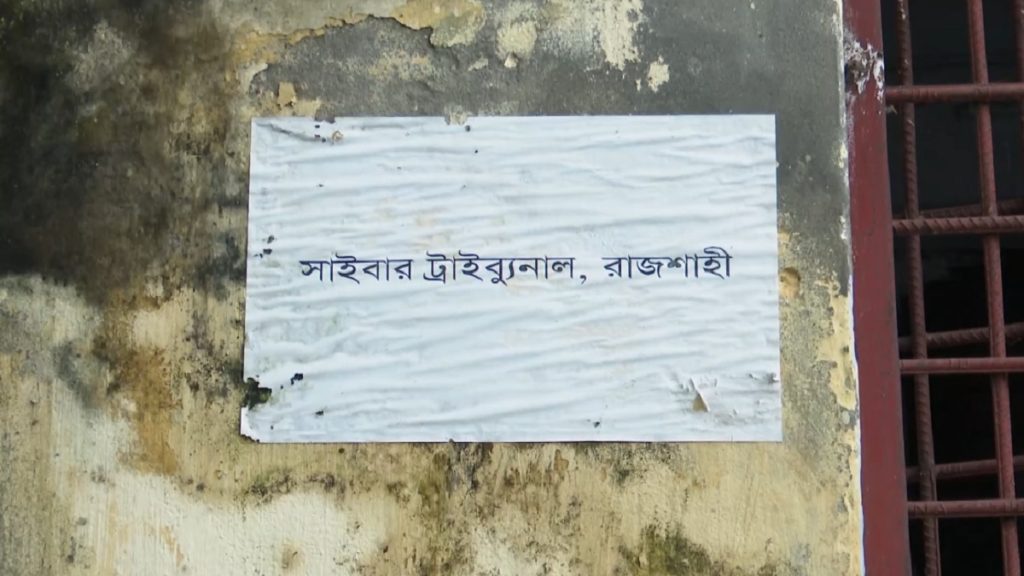 সাইবার ট্রাইব্যুনাল, রাজশাহী